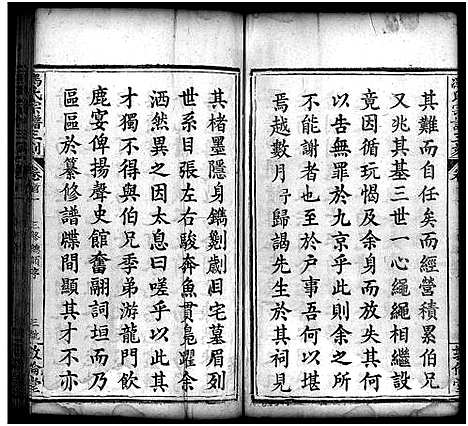 其難而自任矣而經營積累伯兄
又兆其基三世一心繩繩相繼設
竟因循玩愒及余身而放失其何
以告無罪於九京乎嗟乎此余之所
不能謝者也至於戶事吾何以堪
焉越數月予歸謁先生於其祠見
其楮墨隱身鐫劂剞目宅墓眉列
世系目張左右駿奔魚貫鳧躍余
洒然異之因太息曰嗟乎以此其
才獨不得與伯兄季弟游龍門飲
鹿宴俾揚聲史館奮翮詞垣而乃
區區於纂修譜牒間顯其才不亦
馮氏宗譜三刻
卷首一
敦倫堂